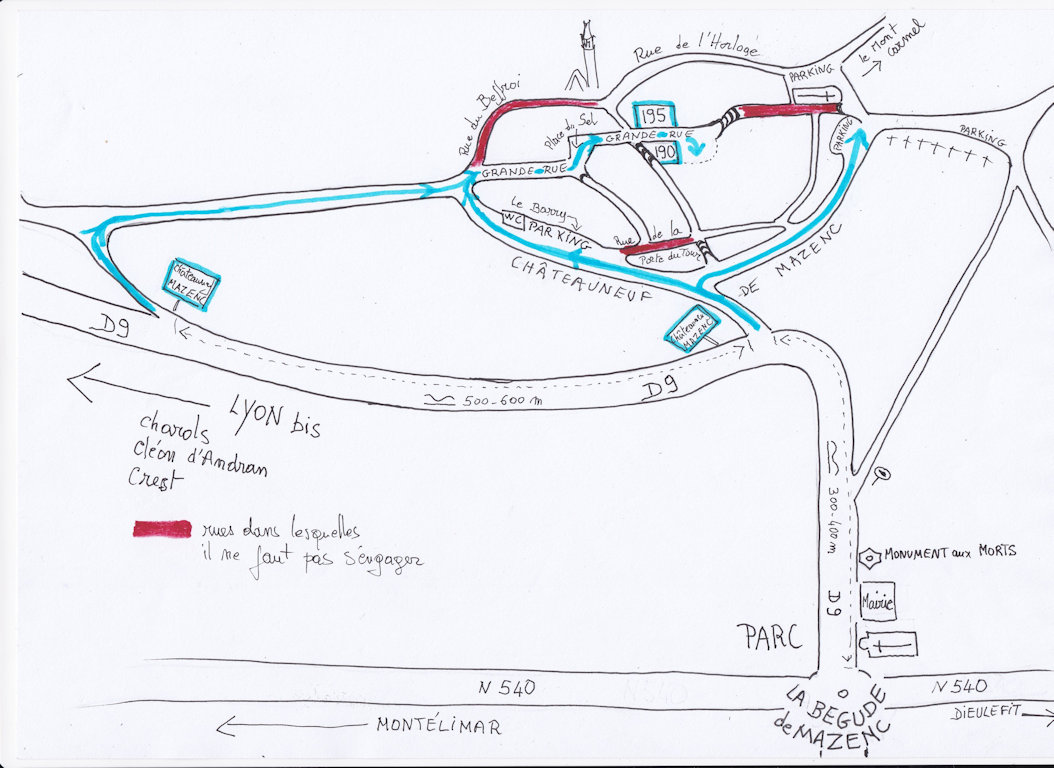 le Mont
Carmel
Rue de l'Horloge
PARKING
Rue du Beffroi
195
Place du Sel
GRANDE RUE
PARKING
PARKING
190
GRANDE RUE
Le Barry
WC
PARKING
Rue de la
Porte du Tour
CHÂTEAUNEUF
DE MAZENC
Châteauneuf
MAZENC
Châteauneuf
MAZENC
D9
D9
500-600 m
LYON bis
charols
Cléon d'Andran
Crest
300-400 m
rues dans lesquelles
il ne faut pas s'engager
MONUMENT aux MORTS
D9
Mairie
PARC
N 540
N 540
LA BEGUDE
de MAZENC
MONTÉLIMAR
DIEULEFIT